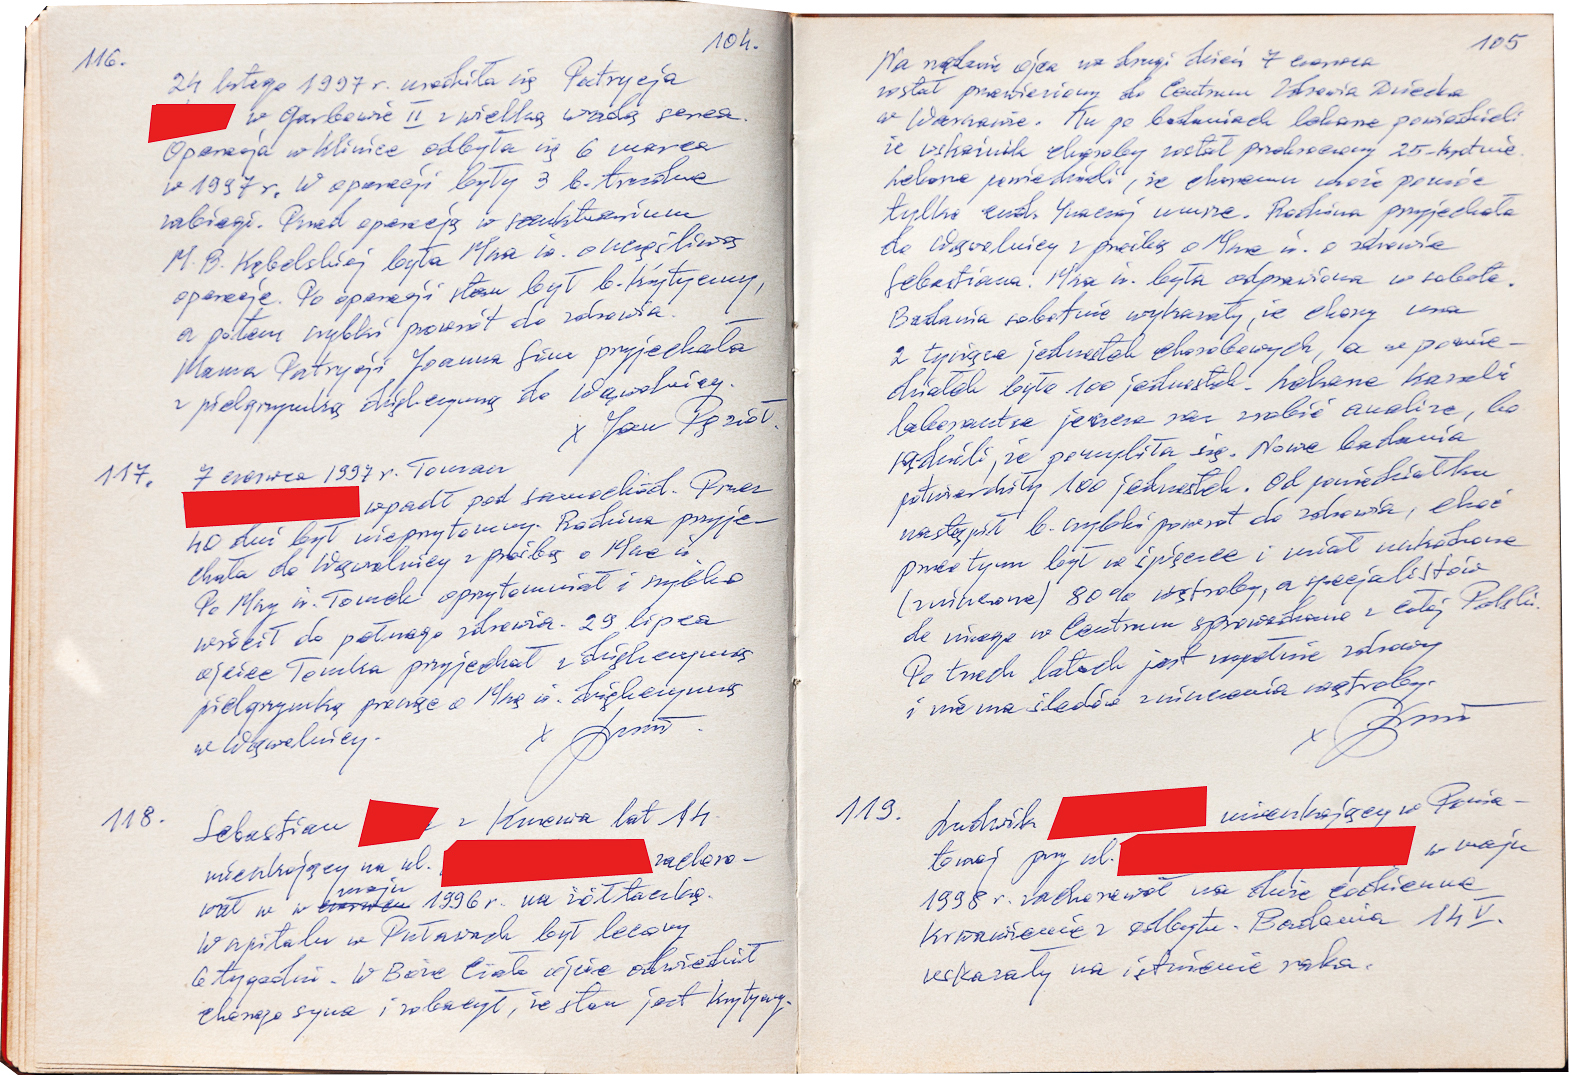 104.
116.
24 lutego 1997 r. urodziła się Patrycja
w Garbowie II z wielką wadą serca.
Operacja w klinice odbyła się 6 marca
w 1997 r. W operacji były 3 b. trudne
zabiegi. Przed operacją w sanktuarium
M. B. Kębelskiej była Msza św. o szczęśliwą
operację. Po operacji stan był b. krytyczny,
a potem szybki powrót do zdrowia.
Mama Patrycji Joanna przyjechała
z pielgrzymką dziękczynną do Wąwolnicy.
x Jan Pęzioł.
117.
7 czerwca 1997 r. Tomasz
wpadł pod samochód. Przez
40 dni był nieprzytomny. Rodzina przyje-
chała do Wąwolnicy z prośbą o Mszę św.
Po Mszy św. Tomek oprzytomniał i szybko
wrócił do pełnego zdrowia. 29 lipca
ojciec Tomka przyjechał z dziękczynną
pielgrzymką prosząc o Mszę św. dziękczynną
w Wąwolnicy.
x
118.
Sebastian z Kurowa lat 14.
mieszkający na ul. zachoro-
wał w w maju czerwcu 1996 r. na żółtaczkę.
W szpitalu w Puławach był leczony
6 tygodni. W Boże Ciało ojciec odwiedził
chorego syna i zobaczył, że stan jest krytyczny.
105
Na żądanie ojca na drugi dzień 7 czerwca
został przewieziony do Centrum Zdrowia Dziecka
w Warszawie. Tu po badaniach lekarze powiedzieli
że wskaźnik choroby został przekroczony 25-krotnie.
Lekarze powiedzieli, że choremu może pomóc
tylko cud. Inaczej umrze. Rodzina przyjechała
do Wąwolnicy z prośbą o Mszę św. o zdrowie
Sebastiana. Msza św. była odprawiona w sobotę.
Badania sobotnie wykazały, że chory ma
2 tysiące jednostek chorobowych, a w ponie-
działek było 100 jednostek. Lekarze kazali
laborantce jeszcze raz zrobić analizę, bo
sądzili, że pomyliła się. Nowe badania
potwierdziły 100 jednostek. Od poniedziałku
nastąpił b. szybki powrót do zdrowia, choć
przedtym był w śpiączce i miał uszkodzone
(zniszczone) 80% wątroby, a specjalistów
do niego w Centrum sprowadzano z całej Polski.
Po trzech latach jest zupełnie zdrowy
i nie ma śladów zniszczenia wątroby.
x
119.
Ludwik mieszkający w Ponia-
towej przy ul. w maju
1998 r. zachorował na duże codzienne
krwawienie z odbytu. Badania 14 V.
wskazały na istnienie raka.